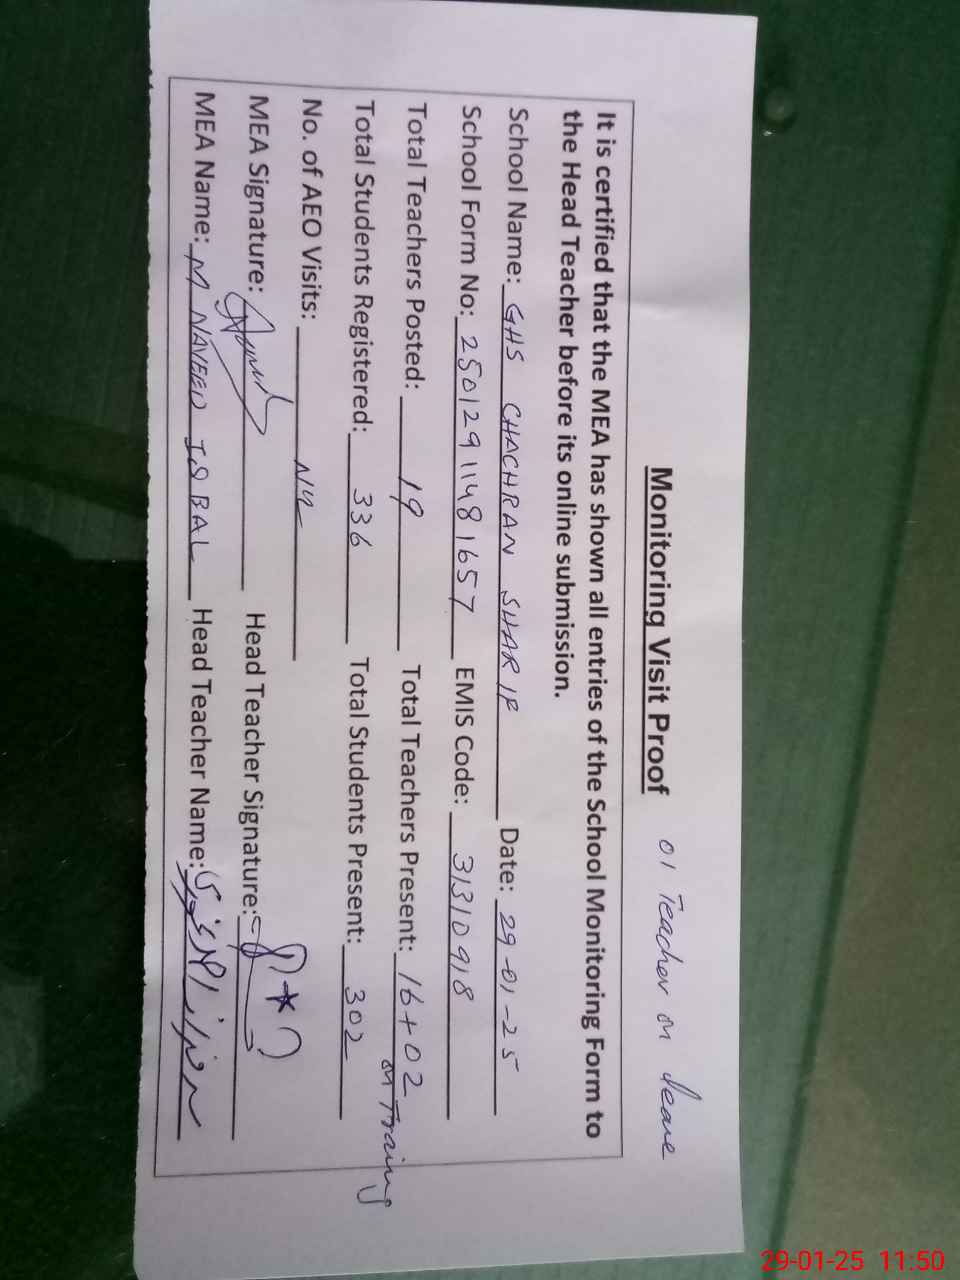 Monitoring Visit Proof 01 Teacher on leave
It is certified that the MEA has shown all entries of the School Monitoring Form to
the Head Teacher before its online submission.
School Name: GHS CHACHRAN SHARIF Date: 29-01-25
School Form No: 25012911481657 EMIS Code: 31310918
Total Teachers Posted: 19 Total Teachers Present: 16+02 on Training
Total Students Registered: 336 Total Students Present: 302
No. of AEO Visits: Nil
MEA Signature: Head Teacher Signature:
MEA Name: M NAVEED IQBAL Head Teacher Name:
29-01-25 11:50